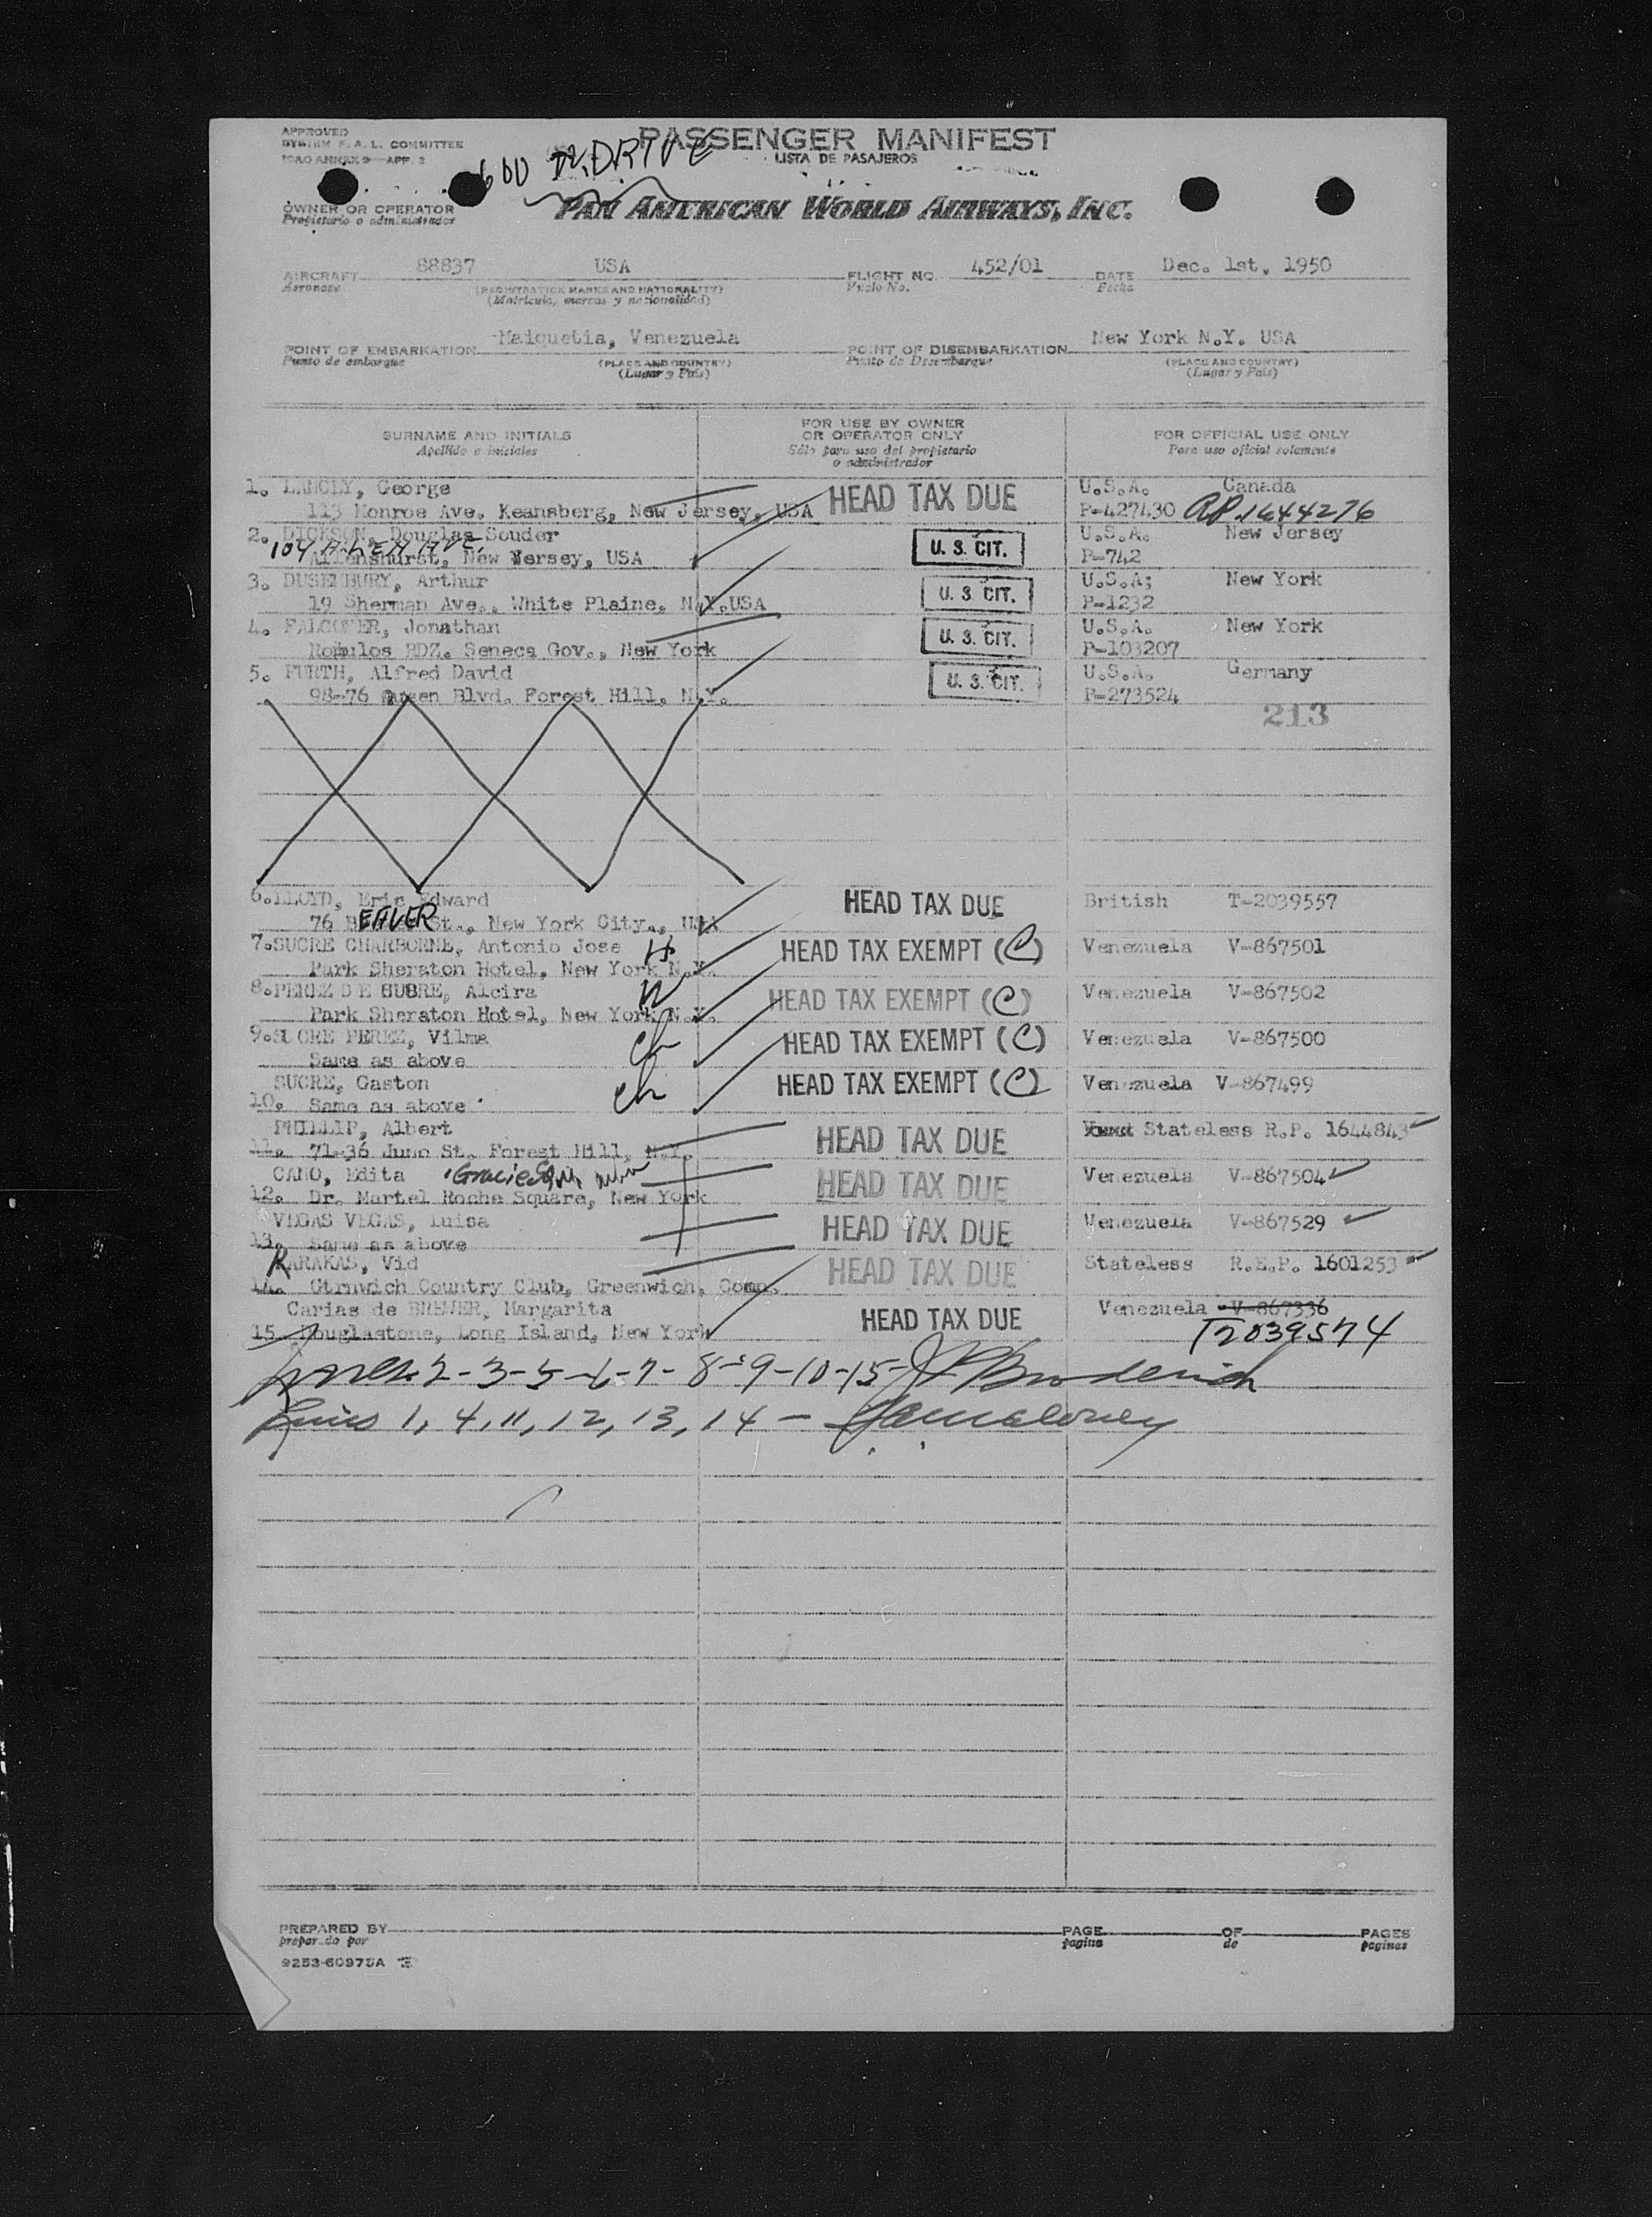 APPROVED
SYSTEM F. A. L. COMMITTEE
ICAO ANNEX 9 APP. 2
PASSENGER MANIFEST
LISTA DE PASAJEROS
600 DRIVE
OWNER OR OPERATOR
Propietario o administrador
PAN AMERICAN WORLD AIRWAYS, INC.
AIRCRAFT 88837 USA FLIGHT NO. 452/01 DATE Dec. 1st, 1950
Aeronave (REGISTRATION MARKS AND NATIONALITY) Vuelo No. Fecha
(Matricula, marcas y nacionalidad)
POINT OF EMBARKATION Maiquetia, Venezuela POINT OF DISEMBARKATION New York N.Y. USA
Punto de embarque (PLACE AND COUNTRY) Punto de Desembarque (PLACE AND COUNTRY)
(Lugar y País) (Lugar y País)
SURNAME AND INITIALS FOR USE BY OWNER OR OPERATOR ONLY FOR OFFICIAL USE ONLY
Apellido e iniciales Sólo para uso del propietario o administrador Para uso oficial solamente
1. George HEAD TAX DUE U.S.A. Canada
113 Monroe Ave. Keansberg, New Jersey, USA P-427430 RP. 1644276
2. DICKSON, Douglas Souder U. S. CIT. U.S.A. New Jersey
104 ALLEN AVE.
Allenshurst, New Jersey, USA P-742
3. DUSENBURY, Arthur U. S. CIT. U.S.A; New York
19 Sherman Ave., White Plaine, N.Y.USA P-1232
4. FALCONER, Jonathan U. S. CIT. U.S.A. New York
Romulos RDZ. Seneca Gov., New York P-103207
5. FURTH, Alfred David U. S. CIT. U.S.A. Germany
98-76 Queen Blvd. Forest Hill, N.Y. P-273524
213
6. LLOYD, Eric Edward HEAD TAX DUE British T-2039557
76 BEAVER St., New York City., USA
7. SUCRE CHARBORNE, Antonio Jose H HEAD TAX EXEMPT (C) Venezuela V-867501
Park Sheraton Hotel, New York N.Y.
8. PEREZ DE SUBRE, Alcira W HEAD TAX EXEMPT (C) Venezuela V-867502
Park Sheraton Hotel, New York N.Y.
9. SUCRE PEREZ, Vilma ch HEAD TAX EXEMPT (C) Venezuela V-867500
Same as above
SUCRE, Gaston ch HEAD TAX EXEMPT (C) Venezuela V-867499
10. Same as above
PHILLIP, Albert HEAD TAX DUE Stateless R.P. 1644843
11. 71-36 Juno St. Forest Hill, N.Y.
CANO, Edita Gracie HEAD TAX DUE Venezuela V-867504
12. Dr. Martel Roche Square, New York
VEGAS VEGAS, Luisa HEAD TAX DUE Venezuela V-867529
13. Same as above
KARAKAS, Vid HEAD TAX DUE Stateless R.E.P. 1601253
14. Gtrnwich Country Club, Greenwich, Conn.
Carias de BREWER, Margarita HEAD TAX DUE Venezuela V-867336
15. Douglastone, Long Island, New York T2039574
Lines 2-3-5-6-7-8-9-10-15- J P Broderick
Lines 1, 4, 11, 12, 13, 14 - Maloney
PREPARED BY PAGE OF PAGES
preparado por pagina de paginas
9253-60975A